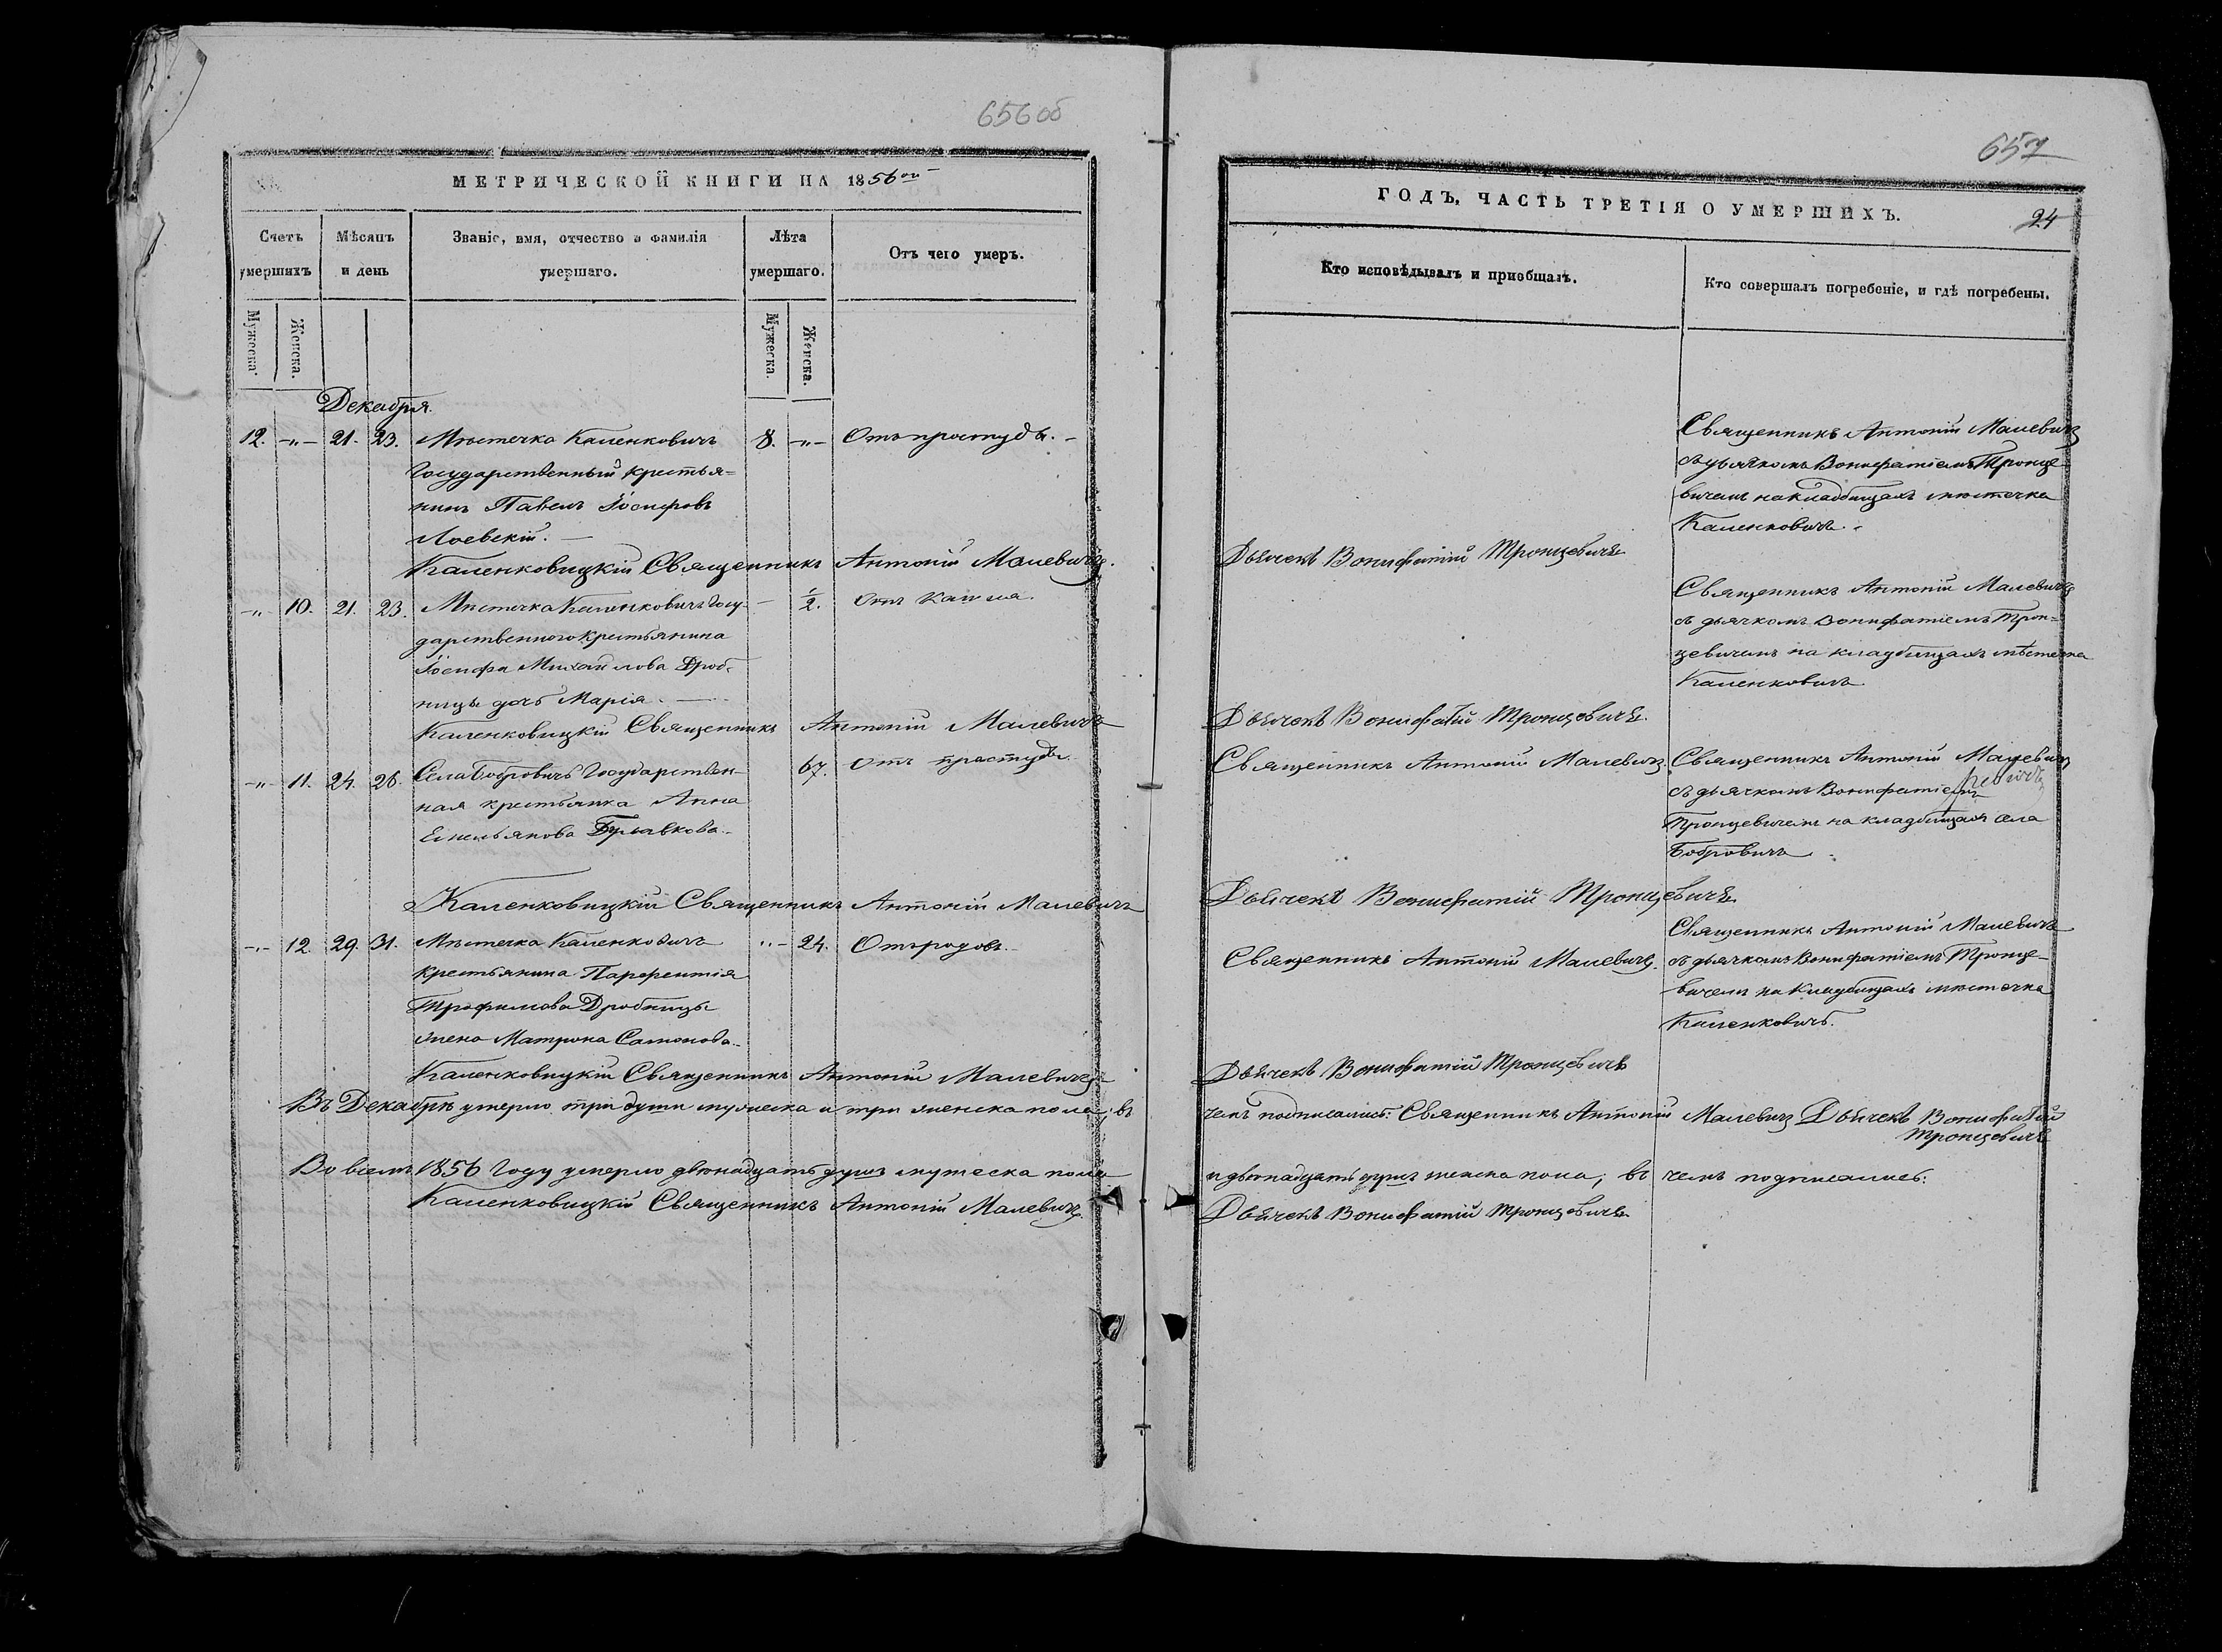 656 об
МЕТРИЧЕСКОЙ КНИГИ НА 1856ой
Счетъ умершихъ
Мѣсяцъ и день
Званіе, имя, отчество и фамилія умершаго.
Лѣта умершаго.
Отъ чего умеръ.
Мужеска.
Женска.
Мужеска.
Женска.
Декабря.
12. -„- 21. 23. Мѣстечка Каленковичъ 8. -„- Отъ простуды. -
Государственный крестья=
нинъ Павелъ Іосифовъ
Лоевскій. —
Каленковицкій Священникъ Антоній Малевичъ.
-„- 10. 21. 23. Мѣстечка Каленковичъ Госу- — 1/2. Отъ кашля.
дарственного крестьянина
Іосифа Михайлова Дроб-
ницы дочь Марія. —
Каленковицкій Священникъ Антоній Малевичъ
-„- 11. 24. 26. Села Бобровичъ Государствен- 67. Отъ простуды.
ная крестьянка Анна
Емельянова Булавкова.
Каленковицкій Священникъ Антоній Малевичъ
-„- 12. 29. 31. Мѣстечка Каленковичъ „- 24. Отъ родовъ.
Крестьянина Парфентія
Трофимова Дробницы
жена Матрона Самонова.
Каленковицкій Священникъ Антоній Малевичъ
Въ Декабрѣ умерло три души мужеска и три женска пола, въ
Во всемъ 1856 Году умерло двѣнадцать душъ мужеска пола
Каленковицкій Священникъ Антоній Малевичъ.
657
ГОДЪ, ЧАСТЬ ТРЕТІЯ О УМЕРШИХЪ.
24
Кто исповѣдывалъ и пріобщалъ.
Кто совершалъ погребеніе, и гдѣ погребены.
Священникъ Антоній Малевичъ
съ дьячкомъ Вонифатіемъ Тронце-
вичемъ на кладбищахъ мѣстечка
Каленковичъ.
Дьячекъ Вонифатій Тронцевичъ
Священникъ Антоній Малевичъ
съ дьячкомъ Вонифатіемъ Трон=
цевичемъ на кладбищахъ мѣстечка
Каленковичъ
Дьячекъ Вонифатій Тронцевичъ.
Священникъ Антоній Малевичъ. Священникъ Антоній Малевичъ
съ дьячкомъ Вонифатіемъ
Тронцевичемъ на кладбищахъ села
Бобровичъ
Дьячекъ Вонифатій Тронцевичъ
Священникъ Антоній Малевичъ
Священникъ Антоній Малевичъ. съ дьячкомъ Вонифатіемъ Тронце-
вичемъ на кладбищахъ мѣстечка
Каленковичъ.
Дьячекъ Вонифатій Тронцевичъ
чемъ подписались: Священникъ Антоній Малевичъ Дьячекъ Вонифатій
Тронцевичъ
и двѣнадцать душъ женска пола, въ чемъ подписались:
Дьячекъ Вонифатій Тронцевичъ